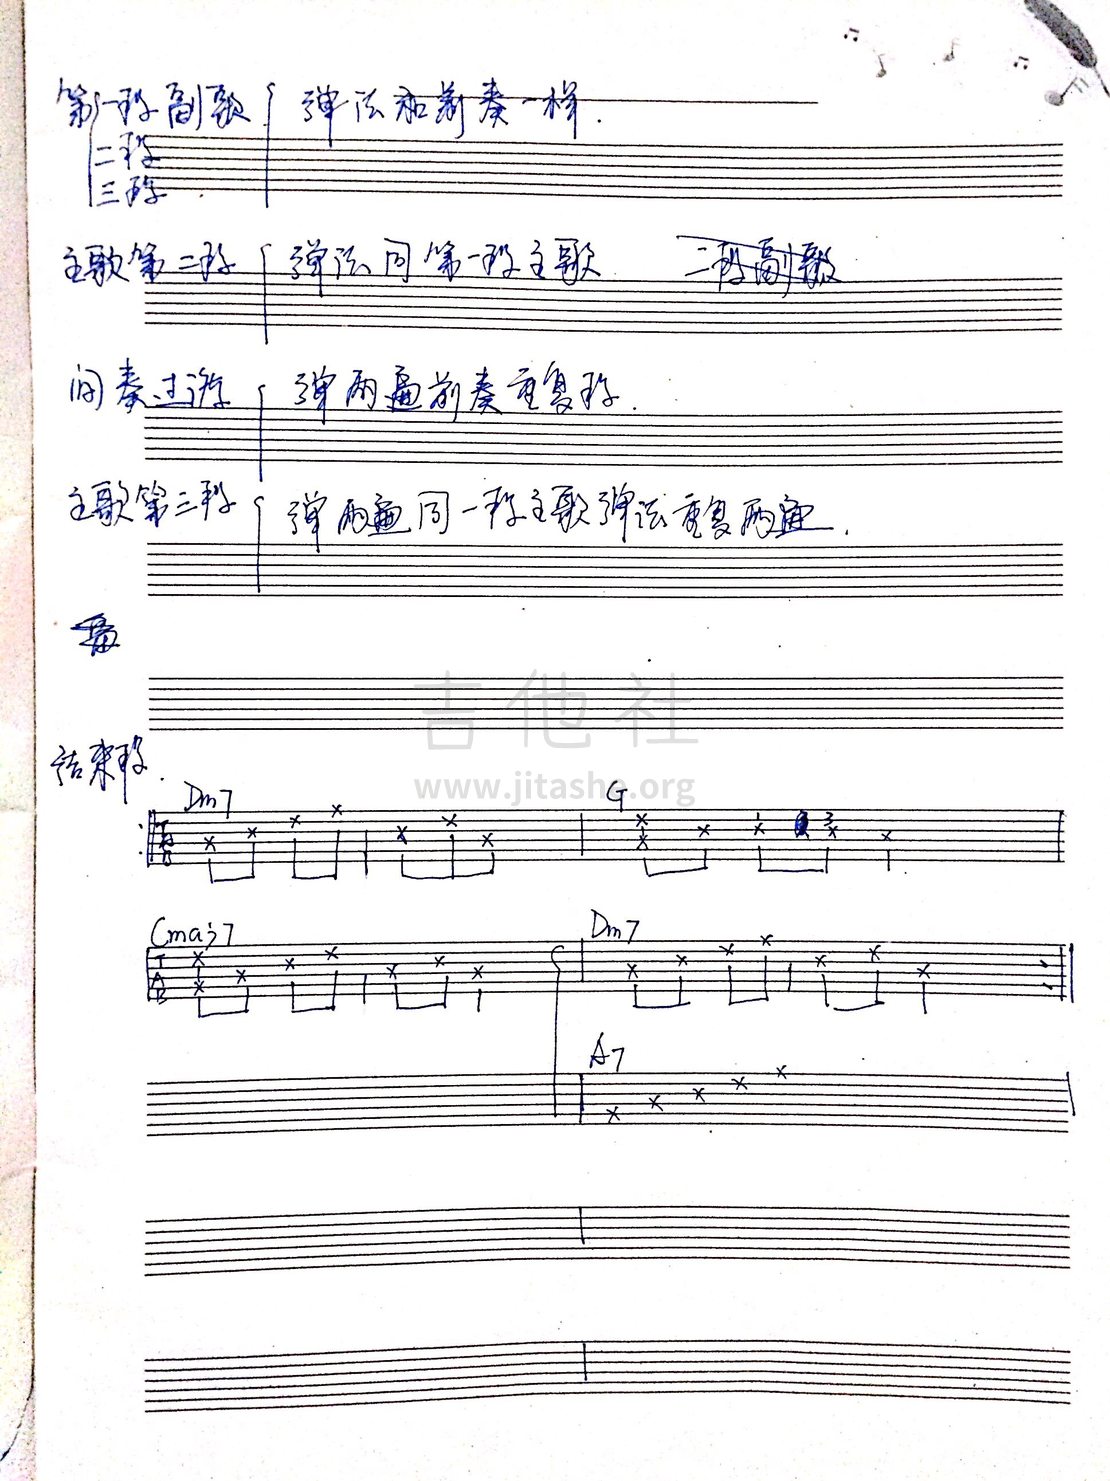 第一段副歌 弹法和前奏一样.
二段
三段
主歌第二段 弹法同第一段主歌 二段副歌
间奏过渡 弹两遍前奏重复段.
主歌第三段 弹两遍同一段主歌弹法重复两遍.
吉他社
结束段.
www.jitashe.org
Dm7 G
TAB
1 3
Cmaj7 Dm7
TAB
A7